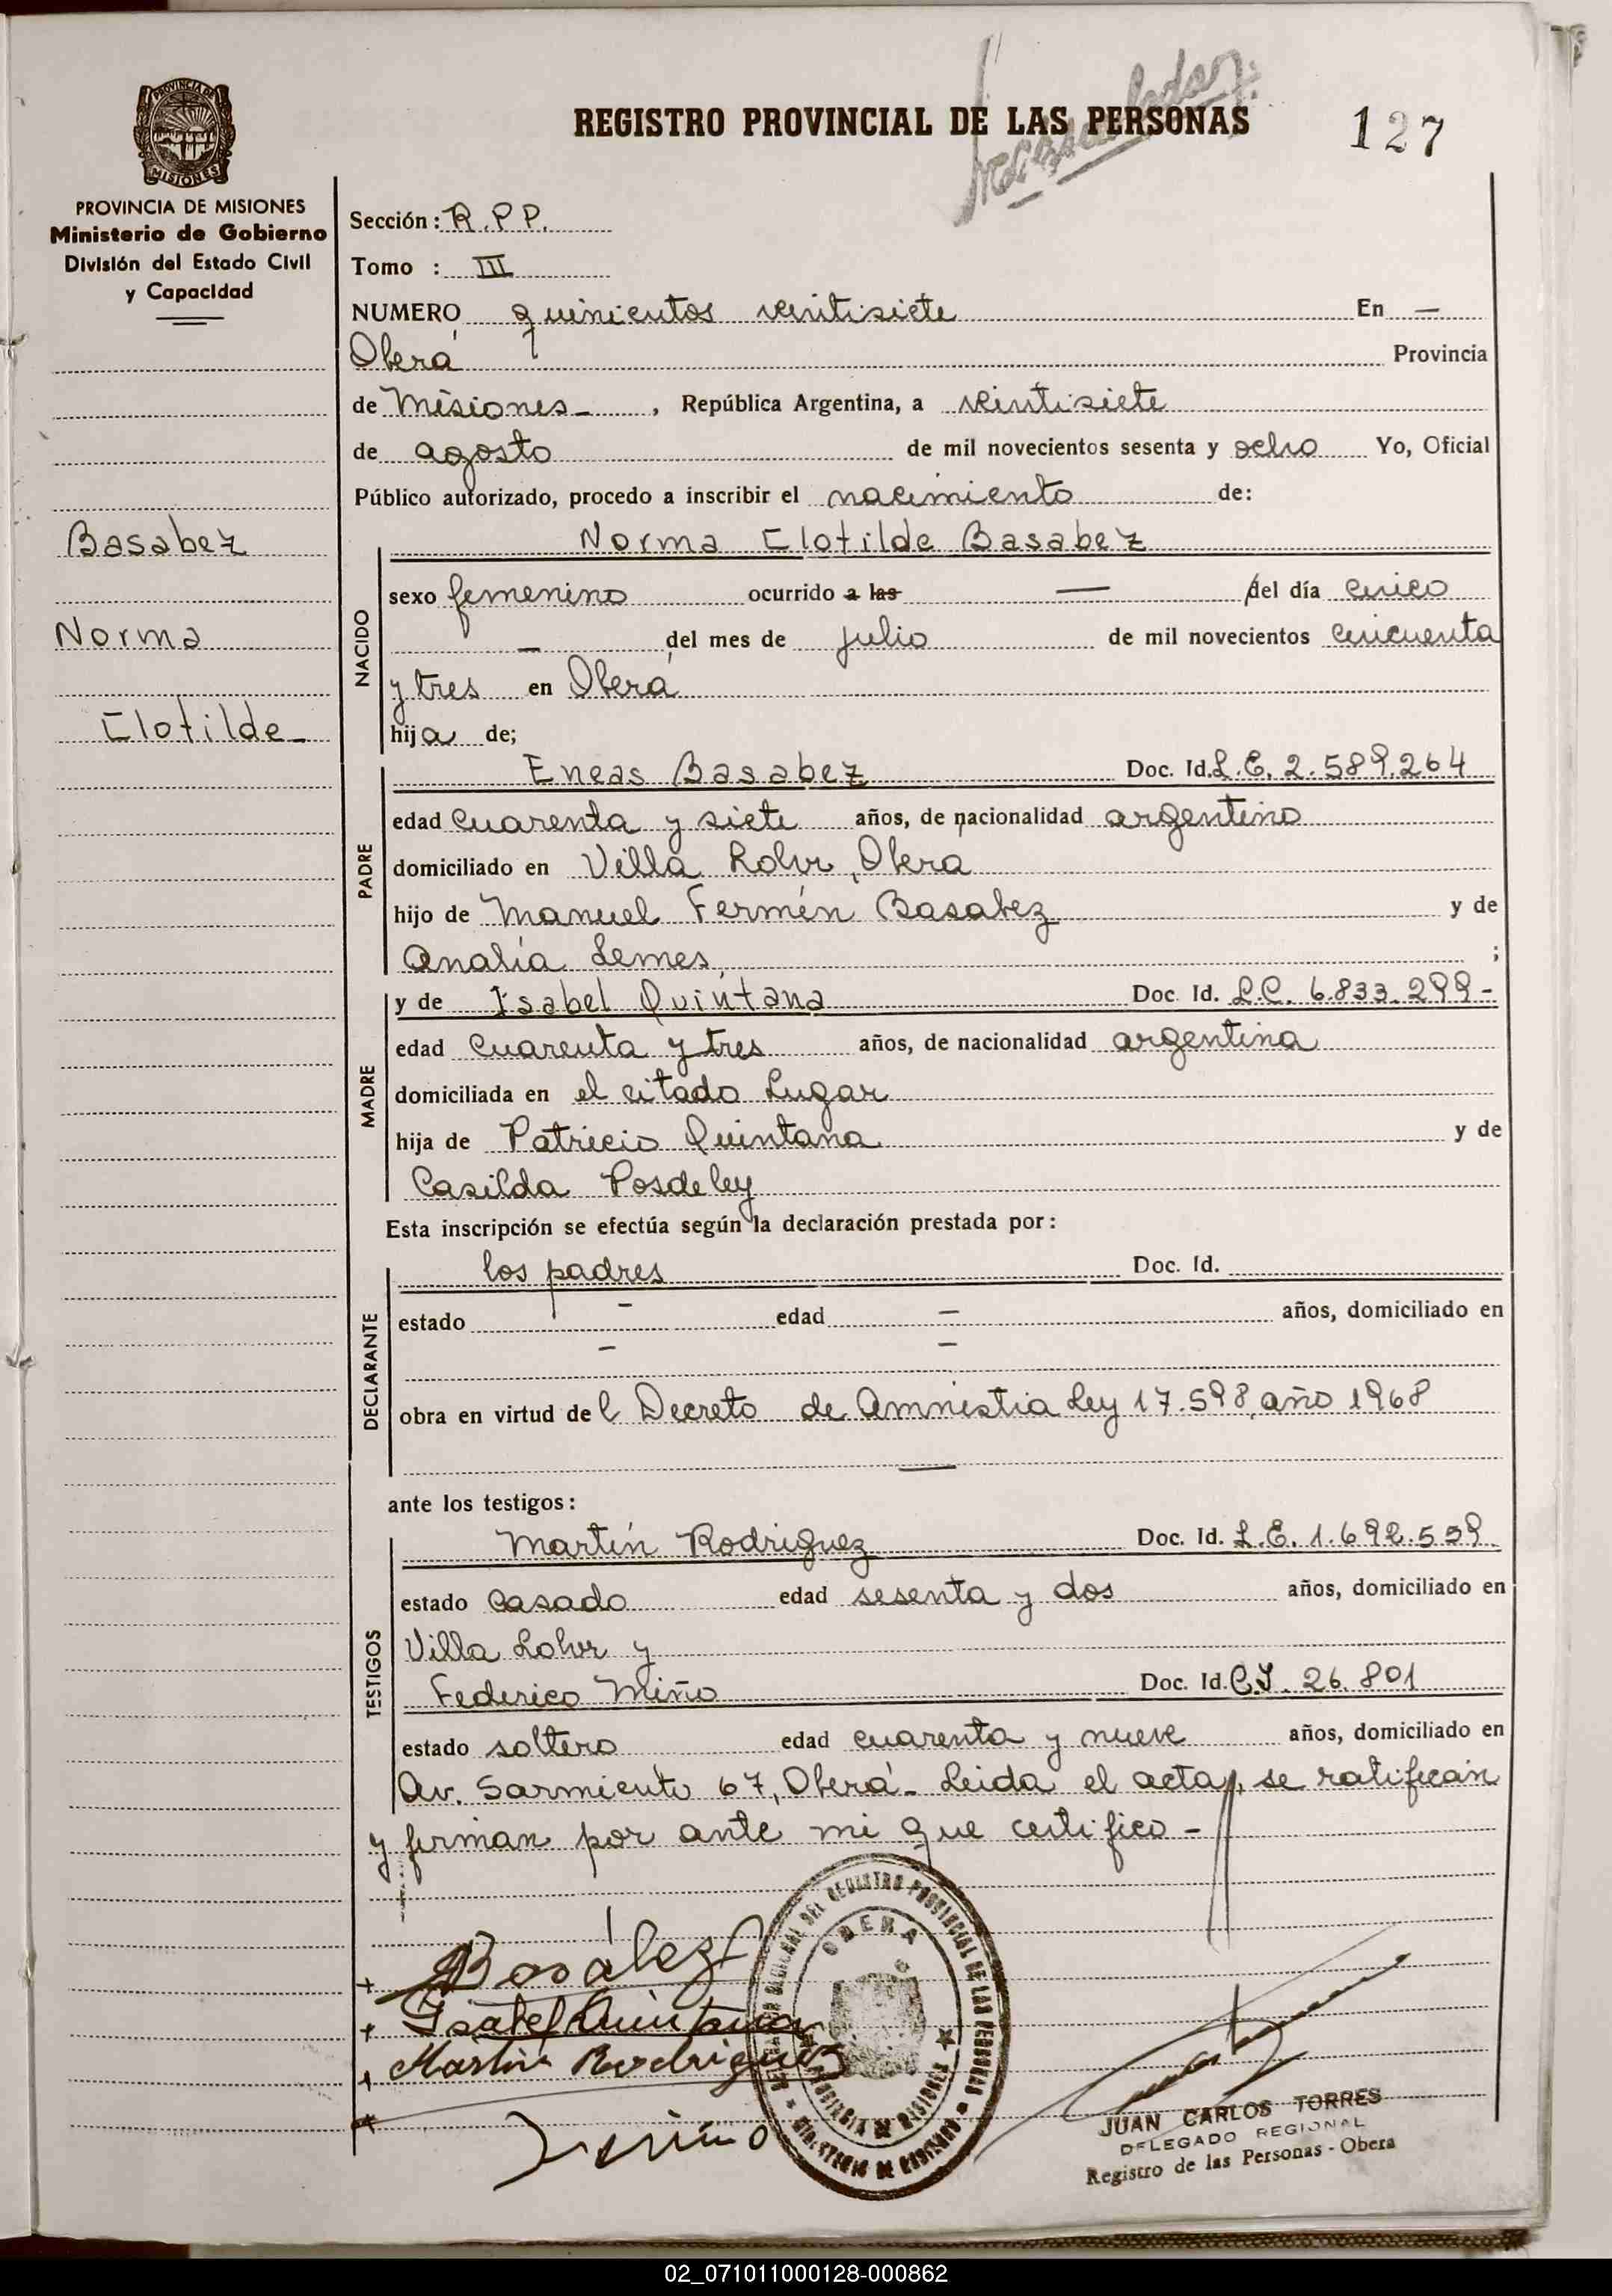 REGISTRO PROVINCIAL DE LAS PERSONAS
127
PROVINCIA DE MISIONES
PROVINCIA DE MISIONES
Ministerio de Gobierno
División del Estado Civil
y Capacidad
Sección: R.P.P.
Tomo : III
NUMERO quinientos veintisiete En —
Oberá Provincia
de Misiones - , República Argentina, a veintisiete
de agosto de mil novecientos sesenta y ocho Yo, Oficial
Público autorizado, procedo a inscribir el nacimiento de:
Basabez
Norma
Clotilde -
NACIDO
Norma Clotilde Basabez
sexo femenino ocurrido a las — del día cinco
— del mes de julio de mil novecientos cincuenta
y tres en Oberá
hija de;
PADRE
Eneas Basabez Doc. Id. L.E. 2.589.264
edad cuarenta y siete años, de nacionalidad argentino
domiciliado en Villa Lohr, Obera
hijo de Manuel Fermín Basabez y de
Analía Lemes ;
MADRE
y de Isabel Quintana Doc. Id. L.C. 6.833.299-
edad cuarenta y tres años, de nacionalidad argentina
domiciliada en el citado lugar
hija de Patricio Quintana y de
Casilda Posdeley
Esta inscripción se efectúa según la declaración prestada por:
DECLARANTE
los padres Doc. Id.
estado — edad — años, domiciliado en
— —
obra en virtud del Decreto de Amnistia Ley 17.598, año 1968
—
ante los testigos:
TESTIGOS
Martín Rodriguez Doc. Id. L.E. 1.692.539
estado casado edad sesenta y dos años, domiciliado en
Villa Lohr y
Federico Miño Doc. Id. C.I. 26.801
estado soltero edad cuarenta y nueve años, domiciliado en
Av. Sarmiento 67, Oberá - Leida el acta, se ratifican
y firman por ante mi que certifico -
Basábez
Isabel Quintana
Martin Rodriguez
Miño
REGISTRO PROVINCIAL DE LAS PERSONAS
OBERA
PROVINCIA DE MISIONES
JUAN CARLOS TORRES
DELEGADO REGIONAL
Registro de las Personas - Obera
02_071011000128-000862